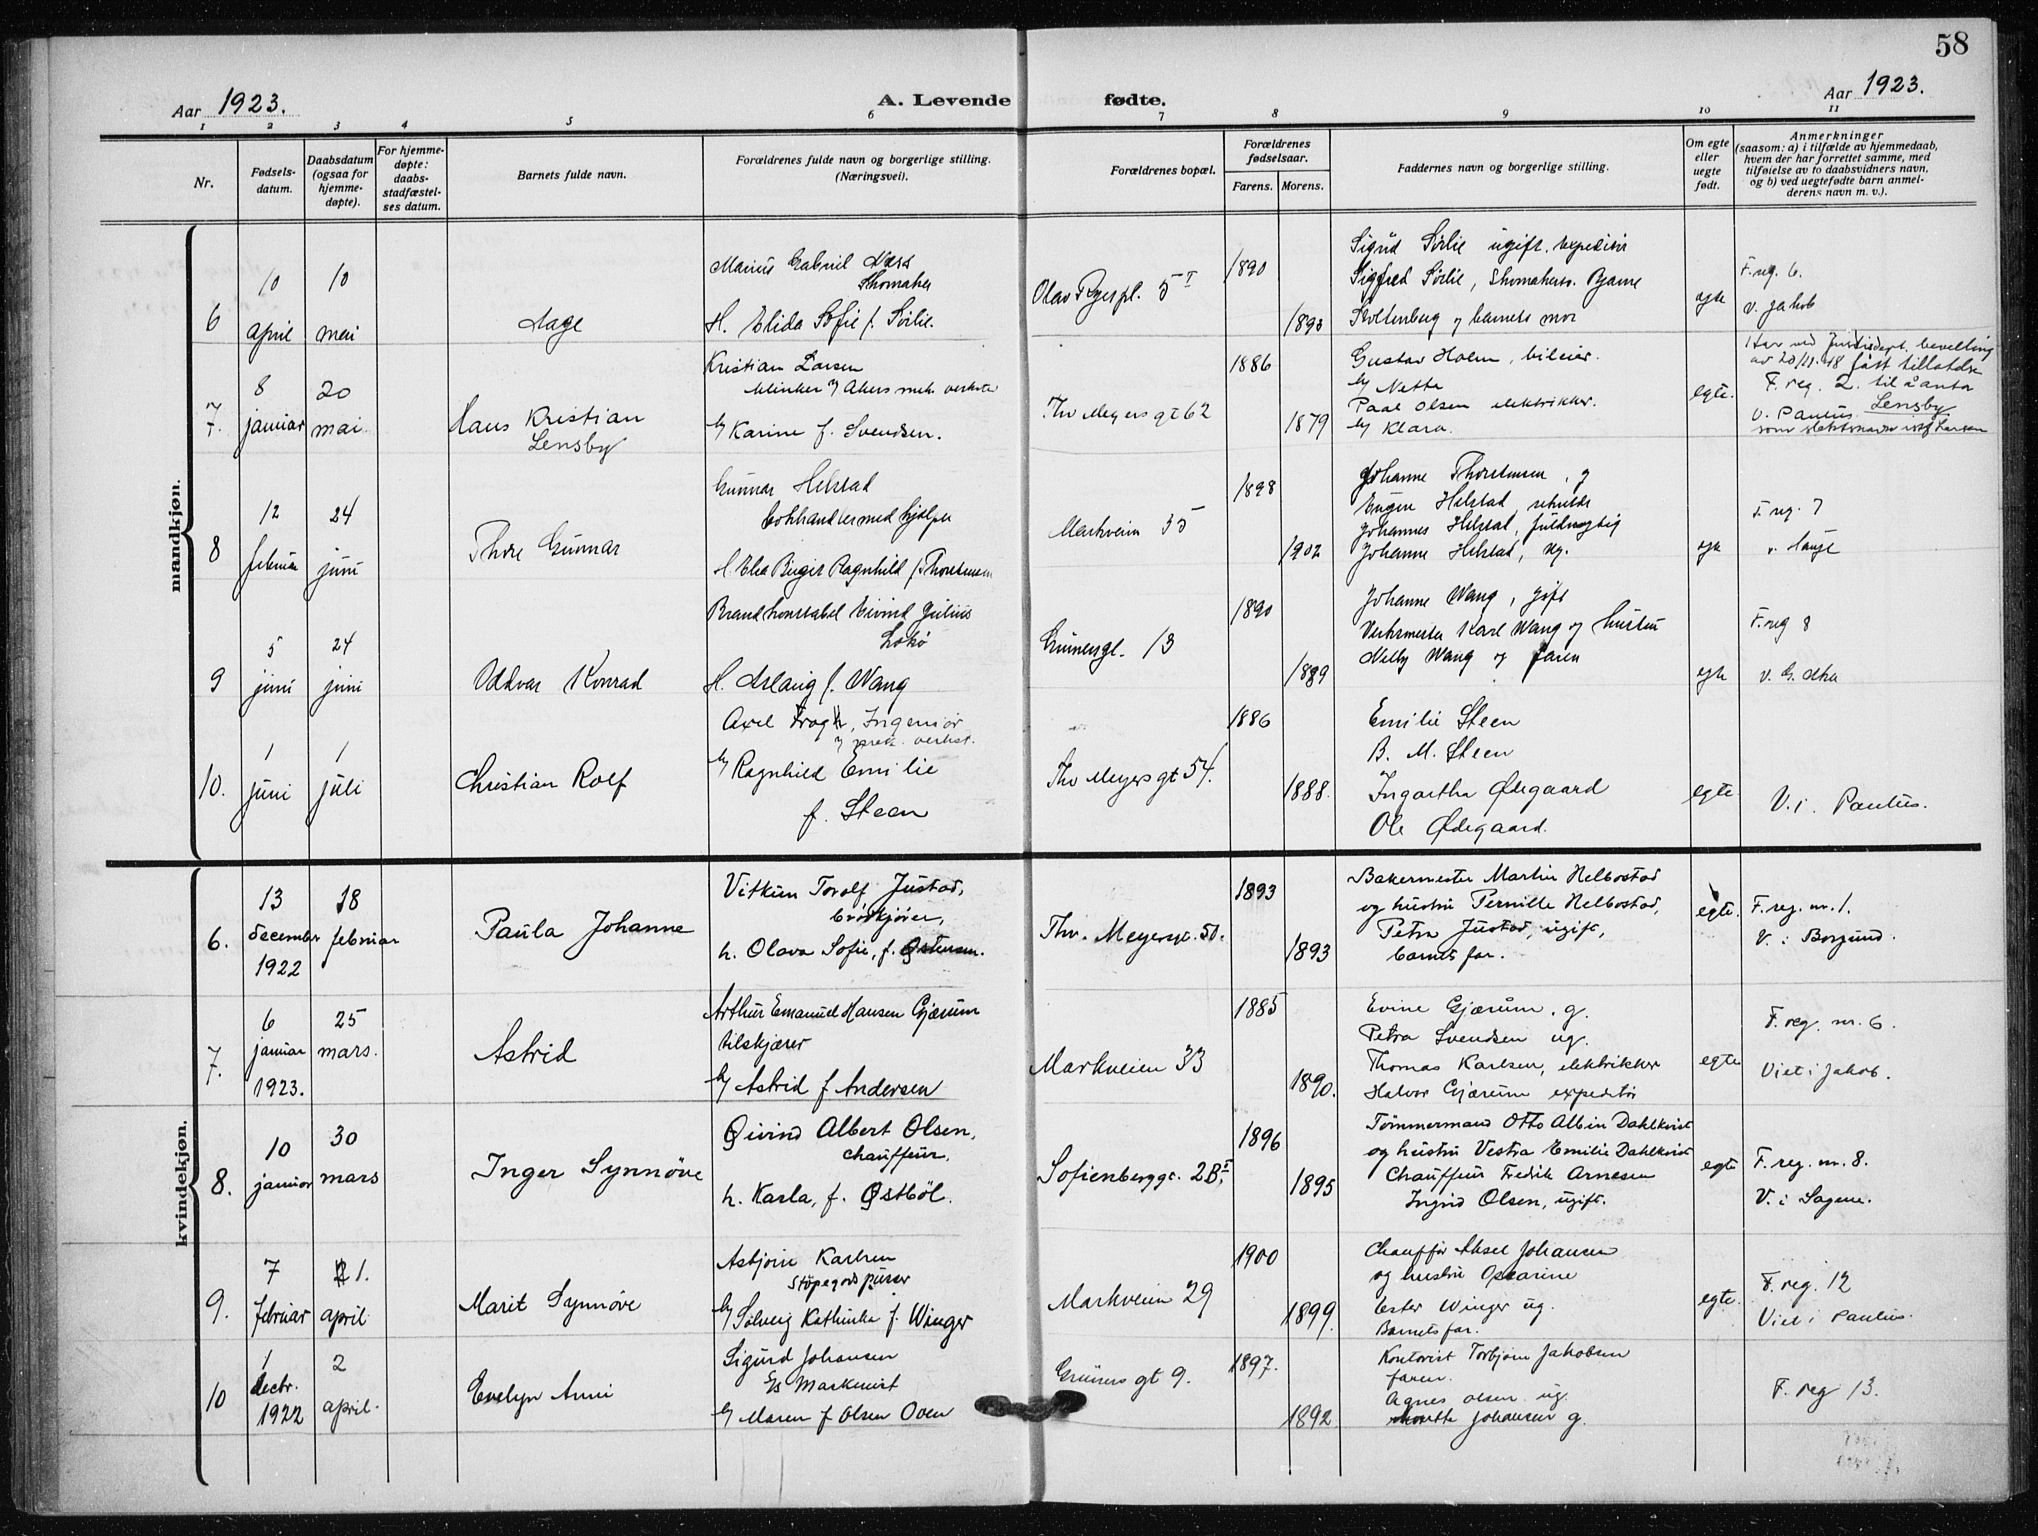 58
Aar 1923.
A. Levende fødte.
Aar 1923.
1 2 3 4 5 6 7 8 9 10 11
Nr.
Fødsels-
datum.
Daabsdatum
(ogsaa for
hjemme-
døpte).
For hjemme-
døpte:
daabs-
stadfæstel-
ses datum.
Barnets fulde navn.
Forældrenes fulde navn og borgerlige stilling.
(Næringsvei).
Forældrenes bopæl.
Forældrenes
fødselsaar.
Farens. Morens.
Faddernes navn og borgerlige stilling.
Om egte
eller
uegte
født.
Anmerkninger
(saasom: a) i tilfælde av hjemmedaab,
hvem der har forrettet samme, med
tilføielse av to daabsvidners navn,
og b) ved uegtefødte barn anmel-
derens navn m. v.).
mandkjøn.
6
10
april
10
mai
Aage
Marius Gabriel
Skomaker
H. Elida Sofie f. Sørlie.
Olav Ryes pl. 5 I
1890
1893
Sigrid Sørlie ugift. Expeditør
Sigfred Sørlie, Skomakers. Bjarne
Stoltenberg og barnets mor
egte
F. reg. 6.
v. Jakob
7.
8
januar
20
mai.
Hans Kristian
Lensby
Kristian Larsen
klinker v/ Akers mek. verksted
h/ Karine f. Svendsen.
Thv Meyers gt 62
1886
1879
Gustav Holm, bileier.
h/ Netta
Paal Olsen elektriker.
h/ Klara.
egte.
Har ved Justisdept. bevilling
av 20/11.48 fått tillatelse
F. reg. 2. til å anta
v. Paulus. Lensby
som slektsnavn istf Larsen
8
12
februar
24
juni
Thore Gunnar
Gunnar Helstad
Bokhandlermedhjelper
H. Elsa Birgit Ragnhild f. Thorstensen
Markveien 35
1898
1902
Johanne Thorstensen, g
Eugen Helstad,
Johannes Helstad, fuldmegtig
Johanne Helstad, ug.
egte
F. reg. 7
v. Hauge
9
5
juni
24
juni
Oddvar Konrad
Brandkonstabel Eivind Julius
Lokø
H. Aslaug f. Wang
Grünersgt. 13
1890
1889
Johanne Wang, gift
Verksmester Karl Wang og hustru
Nelly Wang og faren
egte
F. reg 8
v. G. Aker
10.
1
juni
1
juli
Christian Rolf
Axel Krogh, Ingeniør
v/ mek. verkst.
h/ Ragnhild Emilie
f. Steen
Thv Meyers gt 54.
1886
1888.
Emilie Steen
B. M. Steen
Ingartha Ødegaard
Ole Ødegaard.
egte
V. i. Paulus.
kvindekjøn.
6.
13
december
1922
18
februar
Paula Johanne
Vitkun Torolf Justad,
brødkjører,
h. Olava Sofie, f. Østensen.
Thv. Meyersgt. 50.
1893
1893
Bakermester Martin Helbostad
og hustru Pernille Helbostad,
Petra Justad, ugift,
barnets far.
egte.
F. reg. nr. 1.
V. i Borgund.
7.
6
januar
1923.
25
mars.
Astrid
Arthur Emanuel Hansen Gjærum
tilskjærer
h/ Astrid f Andersen
Markveien 33
1885
1890.
Evine Gjærum. g.
Petra Svendsen ug.
Thomas Karlsen, elektrikker
Halvor Gjærum expeditør
egte
F. reg. nr. 6.
Viet i Jakob.
8.
10
januar
30
mars
Inger Synnøve
Øivind Albert Olsen,
chauffeur,
h. Karla, f. Østbøl.
Sofienberggt. 2B I
1896
1895
Tømmermand Otto Albin Dahlkvist
og hustru Vestra Emilie Dahlkvist
Chauffeur Fredrik Arnesen
Ingrid Olsen, ugift.
egte
F. reg. nr. 8.
V. i Sagene.
9.
7
februar
1.
april
Marit Synnøve
Asbjørn Karlsen
Støpegodspusser
h/ Solveig Kathinka f. Winger
Markveien 29
1900
1899.
Chauffør Aksel Johansen
og hustru Oskarine
Ester Winger ug.
Barnets far.
egte.
F. reg. 12
Viet i Paulus.
10
1
decbr.
1922
2
april.
Evelyn Anni
Sigurd Johansen
h/ Maren f Olsen Oven
Grüners gt 9.
1897.
1892
Kontorist Torbjørn Jakobsen
faren.
Agnes Olsen ug.
Johansen g.
F. reg 13.